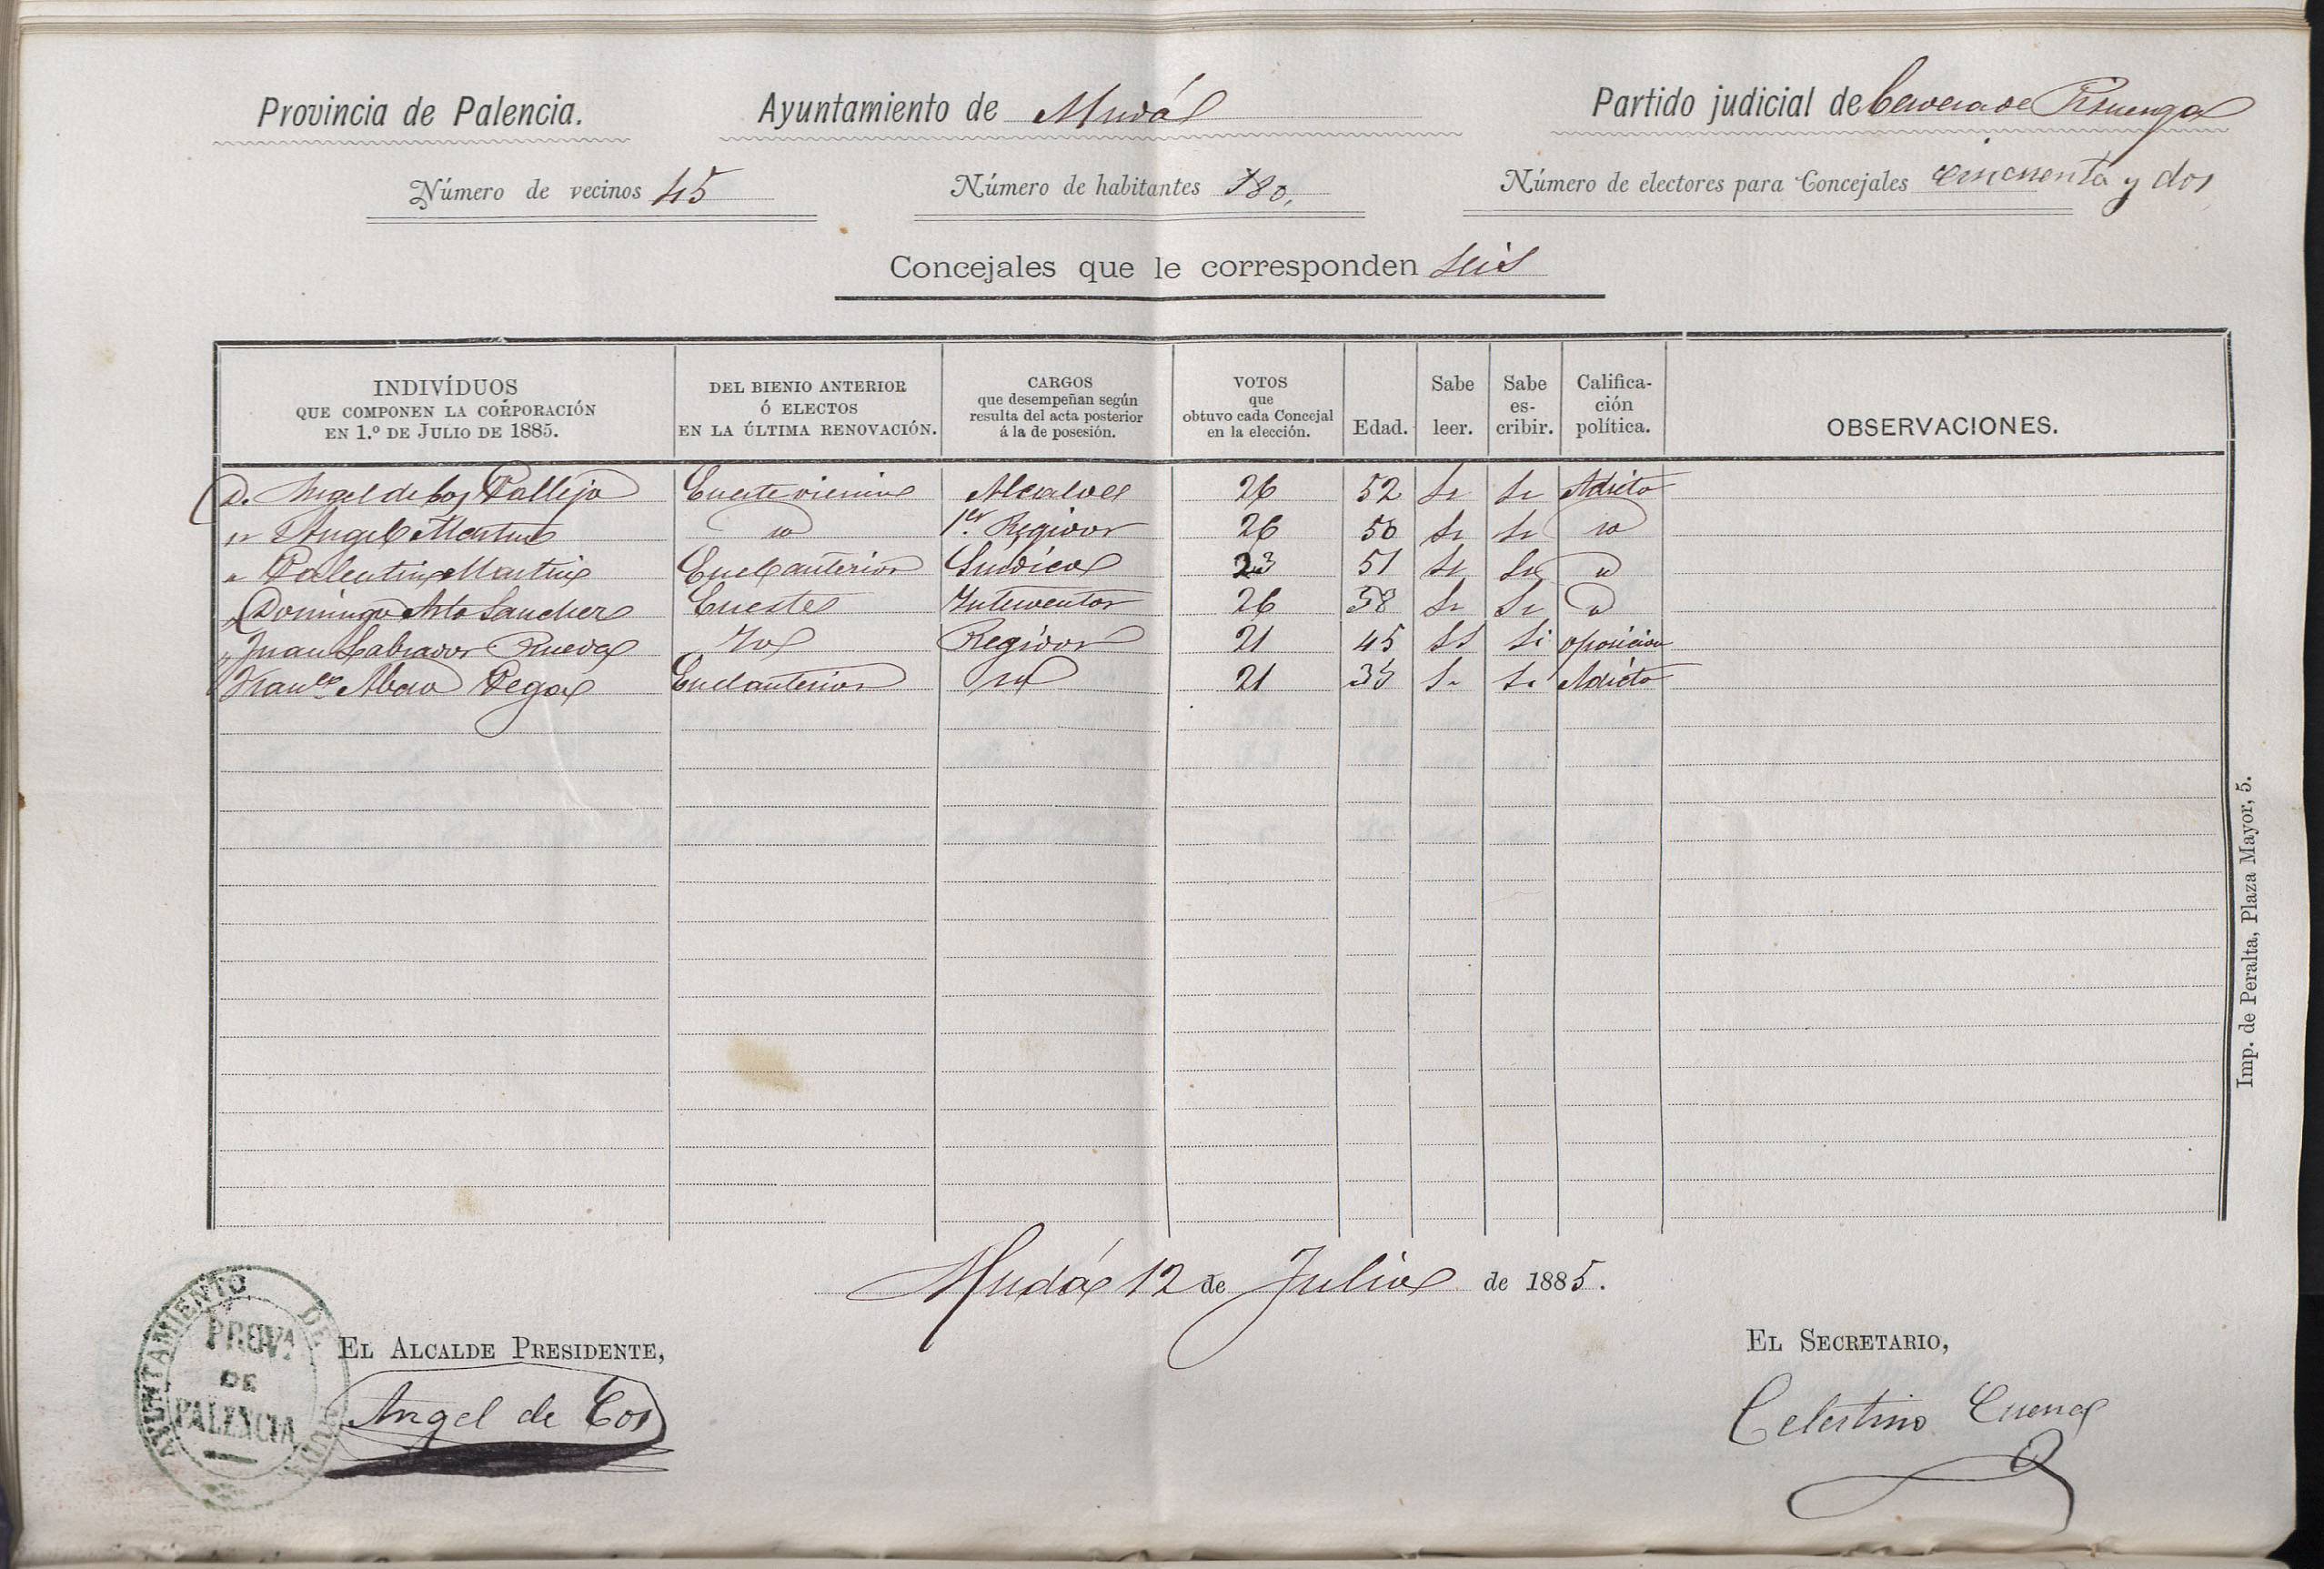 Provincia de Palencia. Ayuntamiento de Mudá Partido judicial de Cervera de Pisuerga
Número de vecinos 45 Número de habitantes 180, Número de electores para Concejales cincuenta y dos
Concejales que le corresponden seis
INDIVÍDUOS QUE COMPONEN LA CORPORACIÓN EN 1.º DE JULIO DE 1885. DEL BIENIO ANTERIOR Ó ELECTOS EN LA ÚLTIMA RENOVACIÓN. CARGOS que desempeñan según resulta del acta posterior á la de posesión. VOTOS que obtuvo cada Concejal en la elección. Edad. Sabe leer. Sabe es-cribir. Califica-ción política. OBSERVACIONES.
D. Angel de Cos Vallejo En este vienio Alcalde 26 52 Si Si Adicto
" Angel Martin id 1er. Regidor 26 50 Si Si id
" Valentin Martin En el anterior Sindico 23 51 Si Si id
" Domingo Arto Sanchez En este Interventor 26 38 Si Si id
" Juan Labrador Rueda Id Regidor 21 45 Si Si oposicion
Franco Abad Vega En el anterior id 21 35 Si Si Adicto
Mudá 12 de Julio de 1885.
EL ALCALDE PRESIDENTE, EL SECRETARIO,
Angel de Cos Celestino Cuenca
AYUNTAMIENTO DE MUDÁ
PROVA
DE
PALENCIA
Imp. de Peralta, Plaza Mayor, 5.